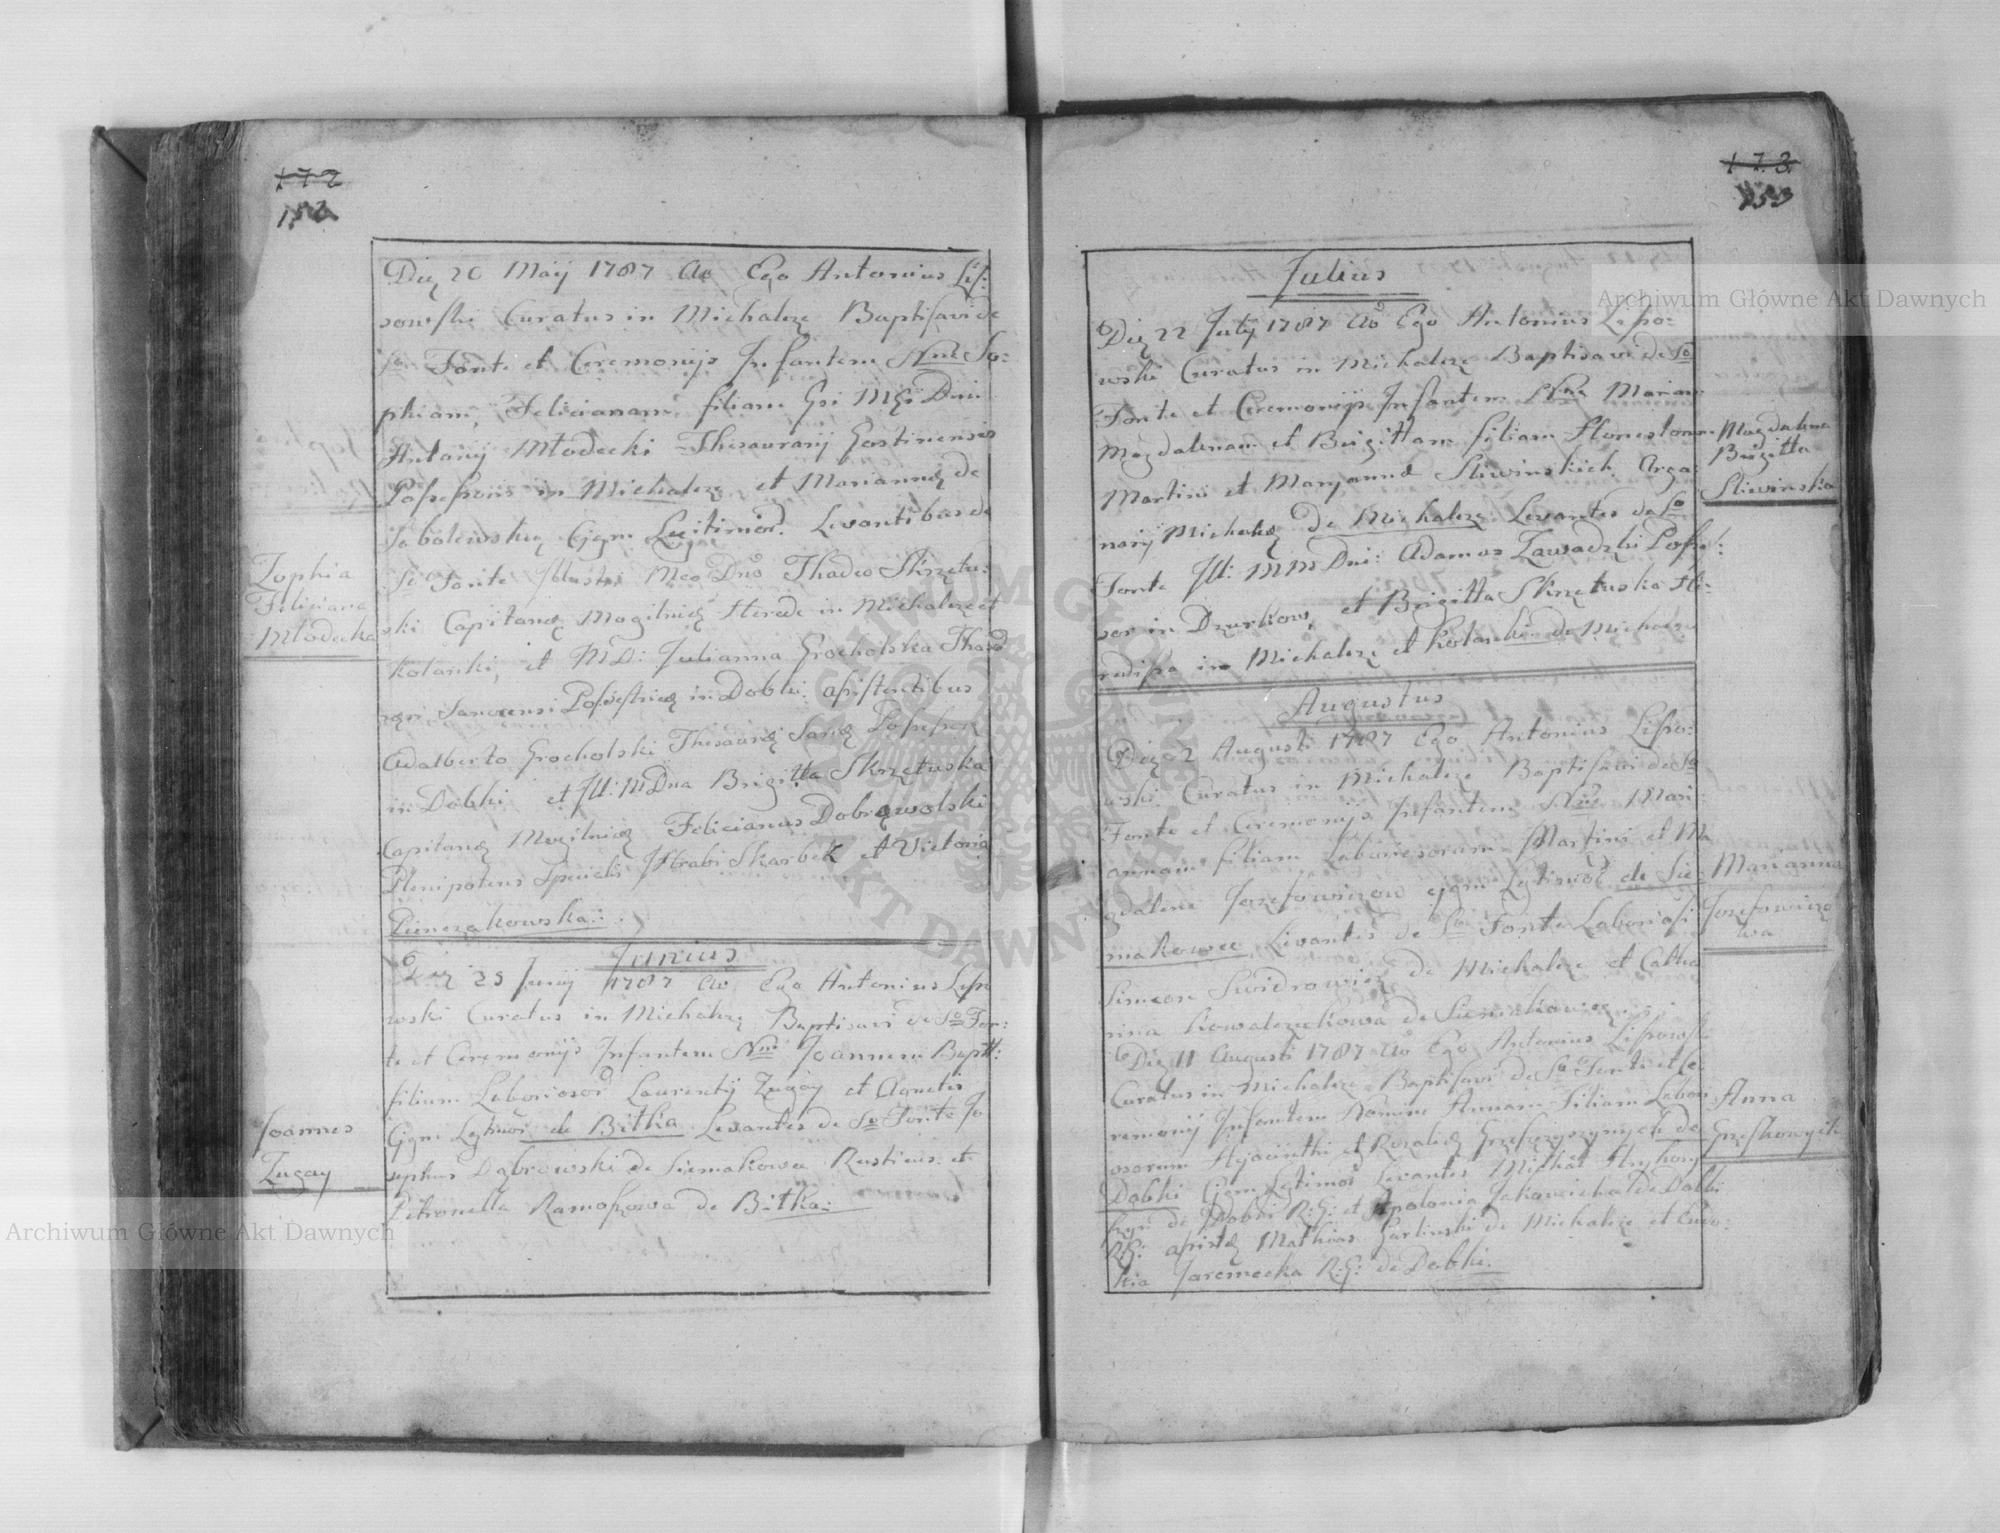 172
182
Die 20 Maij 1787 Ao Ego Antonius Lis:
sowski Curatus in Michalcze Baptisavi de
So Fonte et Ceremonijs Infantem Nne So:
phiam, Felicianam filiam Gsi Mgi Dni
Antonij Młodecki Thesaurarij Gostinensis
Possessoris in Michalcze et Mariannæ de
Sobolewskie Cjgm Legitimor. Levantibus de
So Fonte Illustri Mco Dno Thadeo Skrzetu:
ski Capitaneo Mogilnicę Herede in Michalcze et
Kolanki, et M Di: Julianna Grocholska Thesa
Possestricę in Dobki: assistentibus
Adalberto Grocholski Possessor
in Dobki et Ill: M Dna Brigitta Skrzetuska
Capitaneæ Felicianus Dobrowolski
Plenipotens Specialis Hrabi Skarbek et Victoria
Pieniezakowska:
Zophia
Feliciana
Młodecka
Junius
Die 25 Junij 1787 Ao Ego Antonius Liso
wski Curatus in Michalcze Baptisavi de So Fon:
te et Ceremonijs Infantem Nne Joannem Baptt:
filium Laboriosor Laurentij Zugay et Agnetis
Cjgm Lgtmor de Bitka Levantes de So Fonte Jo
sephus Dąbrowski de Siemakowce Rusticus et
Petronella Ramoszowa de Bitka:
Joannes
Zugay
173
183
Julius
Die 22 July 1787 Ao Ego Antonius Lisso:
wski Curatus in Michalcze Baptisavi de So
Fonte et Ceremonijs Infantem Nne Mariam
Magdalenam et Brigittam filiam Honestorum
Martini et Maryannæ Sliwinskich Orga:
narij Michalcę de Michalcze Levantes de So
Fonte Ill: MM Dni: Adamus Zawadzki Posse:
sor in Dzurkow, et Brigitta Skrzetuska He:
redissa in Michalcze et Kolanki de Michalcze
Magdalena
Brigitta
Sliwinska
Augustus
Die 2 Augusti 1787 Ego Antonius Lisso:
wski Curatus in Michalcze Baptisavi de So
Fonte et Ceremonijs Infantem Nne Mari
annam filiam Laboriosorum Martini et Ma
gdalene Jozefowiczow cjgm Lgtimor de Sie
makowce Levantes de So Fonte Laboriosi
Simeon Swidrowicz de Michalcze et Catha
rina Kowalczukowa de Siemakowce
Marianna
Jozefowiczo
wa
Die 11 Augusti 1787 Ao Ego Antonius Lissowski
Curatus in Michalcze Baptisavi de So Fonte et Ce
remonij Infantem Nomine Annam Filiam Labori
osorum Hyacinthi et Rozaliæ de
Dobki Cjgm Lgtimor Levantes Michał Hryhory
de Dobki R: G: et Apolonia de Dobki
R: G: Mathias Garlinski de Michalcze et Eudo:
kia Jaremecka R: G: de Dobki.
Anna
Archiwum Główne Akt Dawnych
Archiwum Główne Akt Dawnych
ARCHIWUM GŁÓWNE AKT DAWNYCH